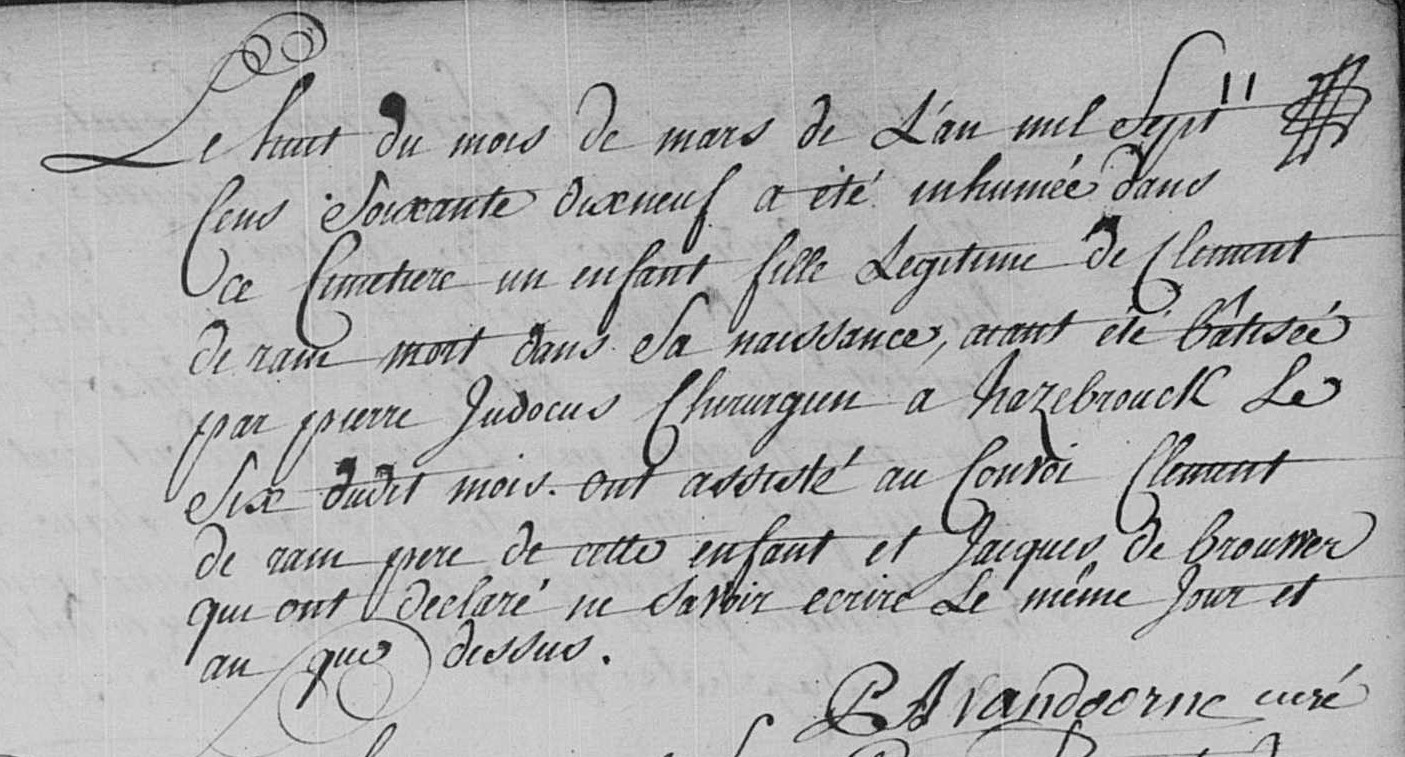 Le huit du mois de mars de L'an mil Sept 11
Cens Soixante dixneuf a eté inhumée dans
ce Cimetiere un enfant fille Legitime de Clement
de ram mort dans Sa naissance, aiant été bâtisée
par pierre Judocus Chirurgien a hazebrouck Le
Six dudit mois. ont assisté au Convoi Clement
de ram pere de cette enfant et Jacques de brouwer
qui ont declaré ne savoir ecrire Le même Jour et
an que dessus.
P A vandoorne curé